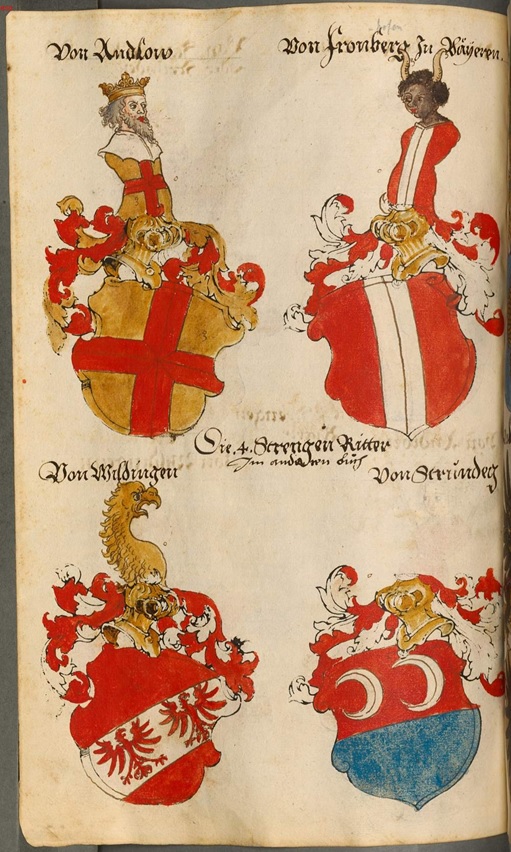 Von Andlow
Von Fronberg In Bäyeren.
hofen
Die .4. Strengen Ritter
Im anderen buch
Von Wildingen
Von Strundeck